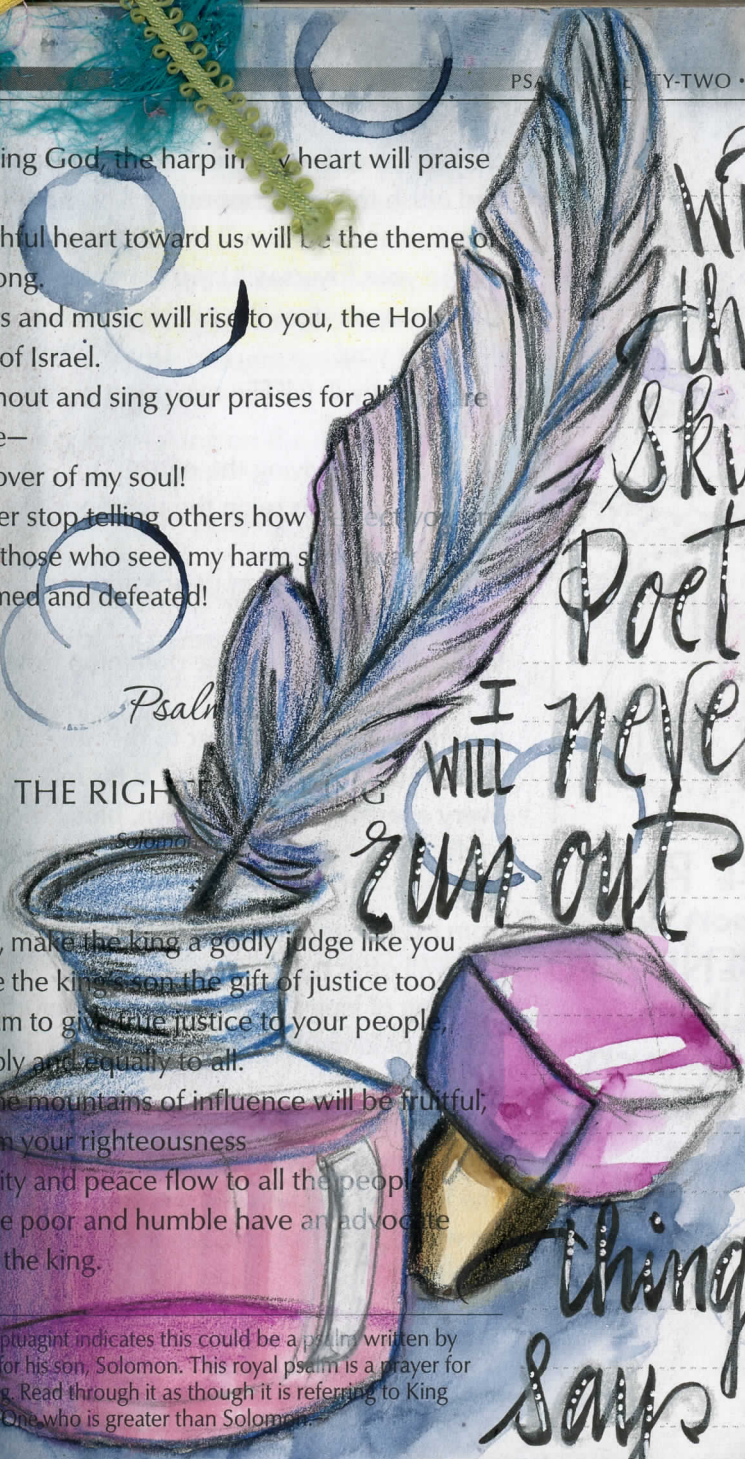 PSA TY-TWO •
ing God, the harp in my heart will praise
hful heart toward us will be the theme of
ong.
s and music will rise to you, the Holy
of Israel.
hout and sing your praises for all
e—
over of my soul!
er stop telling others how you are
those who seek my harm
med and defeated!
Psalm
THE RIGH G
Solomon
, make the king a godly judge like you
e the king's son the gift of justice too.
m to give true justice to your people,
bly and equally to all.
he mountains of influence will be fruitful;
m your righteousness
ity and peace flow to all the people
e poor and humble have an advocate
the king.
ptuagint indicates this could be a psalm written by
for his son, Solomon. This royal psalm is a prayer for
g. Read through it as though it is referring to King
One who is greater than Solomon.
Wi
th
Ski
Poet
I
WILL neve
run out
thing
says